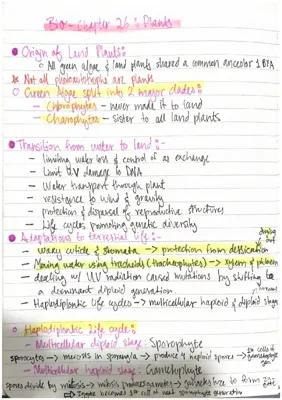 Bio - Chapter 26: Plants
Origin of Land Plants:
All green algae & land plants shared a common ancestor 1 BYA
Not all photoautotrophs are plants
Green Algae split into 2 major clades:
- Chlorophytes - never made it to land
- Charophytes - sister to all land plants
Transition from water to land:-
- limiting water loss & control of gas exchange
- limit UV damage to DNA
- Water transport through plant
- resistance to wind & gravity
- protection & dispersal of reproductive structures
- Life cycles promoting genetic diversity
Adaptations to terrestrial life:-
drying out
- waxy cuticle & stomata -> protection from desiccation
- Moving water using tracheids (tracheophytes) -> xylem & phloem
- dealing w/ UV radiation caused mutations by shifting to
a dominant diploid generation
- Haplodiplontic life cycles -> multicellular haploid & diploid stage
Haplodiplontic life cycle:
- Multicellular diploid stage: Sporophyte
sporocyte -> meiosis in sporangia -> produce 4 haploid spores -> 1st cells of gametophyte gen
- Multicellular haploid stage: Gametophyte
spores divide by mitosis -> mitosis produces gametes -> gametes fuse to form zygote,
-> Zygote becomes 1st cell of next sporophyte generation